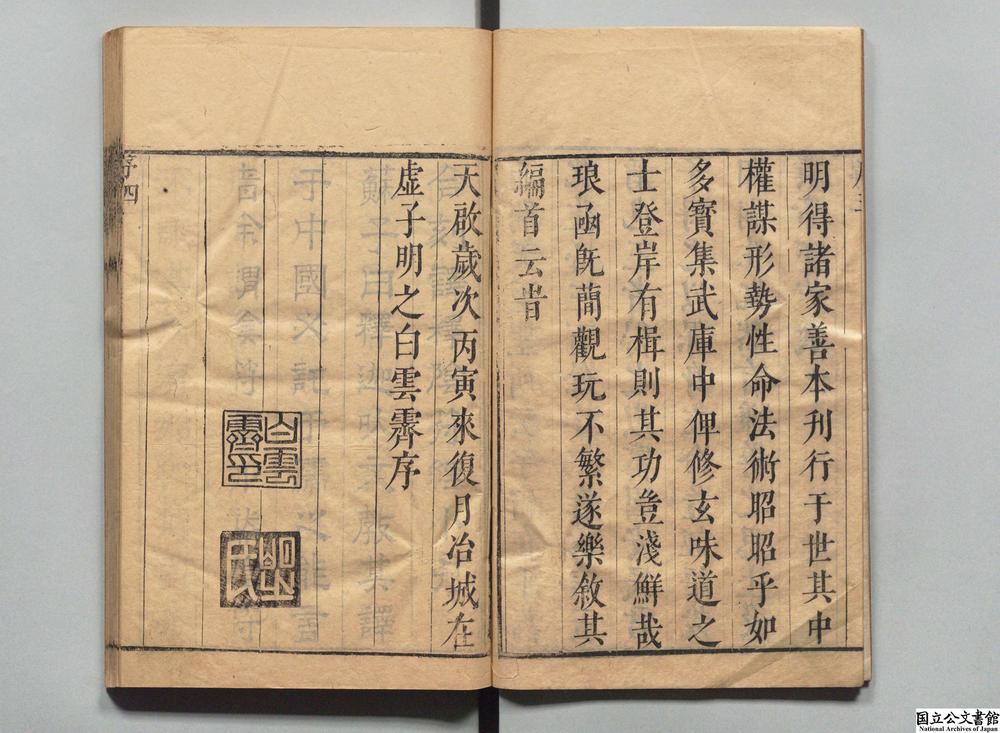 明得諸家善本刊行于世其中
權謀形勢性命法術昭昭乎如
多寶集武庫中俾修玄味道之
士登岸有楫則其功豈淺鮮哉
琅函旣蕳觀玩不繁遂樂敘其
編首云旹
天啟歲次丙寅來復月冶城在
虛子明之白雲霽序
白雲
霽印
明之
氏
序四
国立公文書館
National Archives of Japan